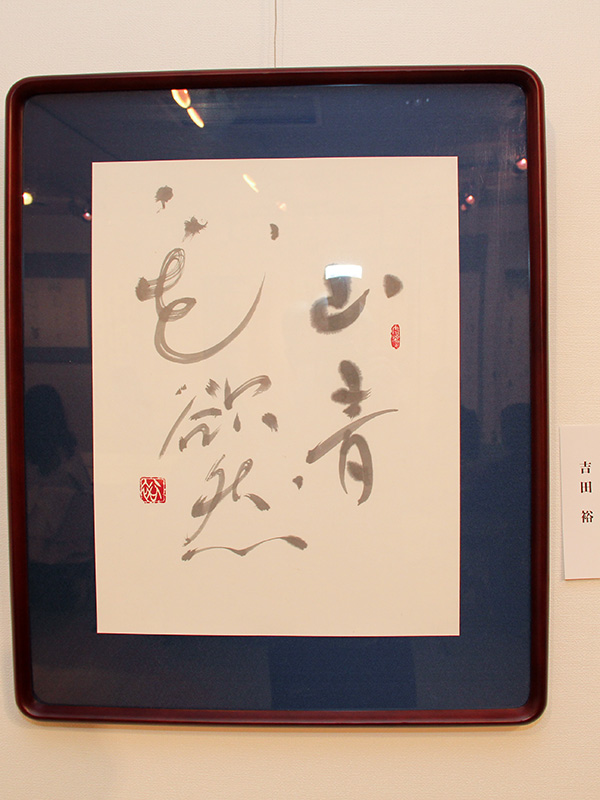 山青
花欲然
吉田裕